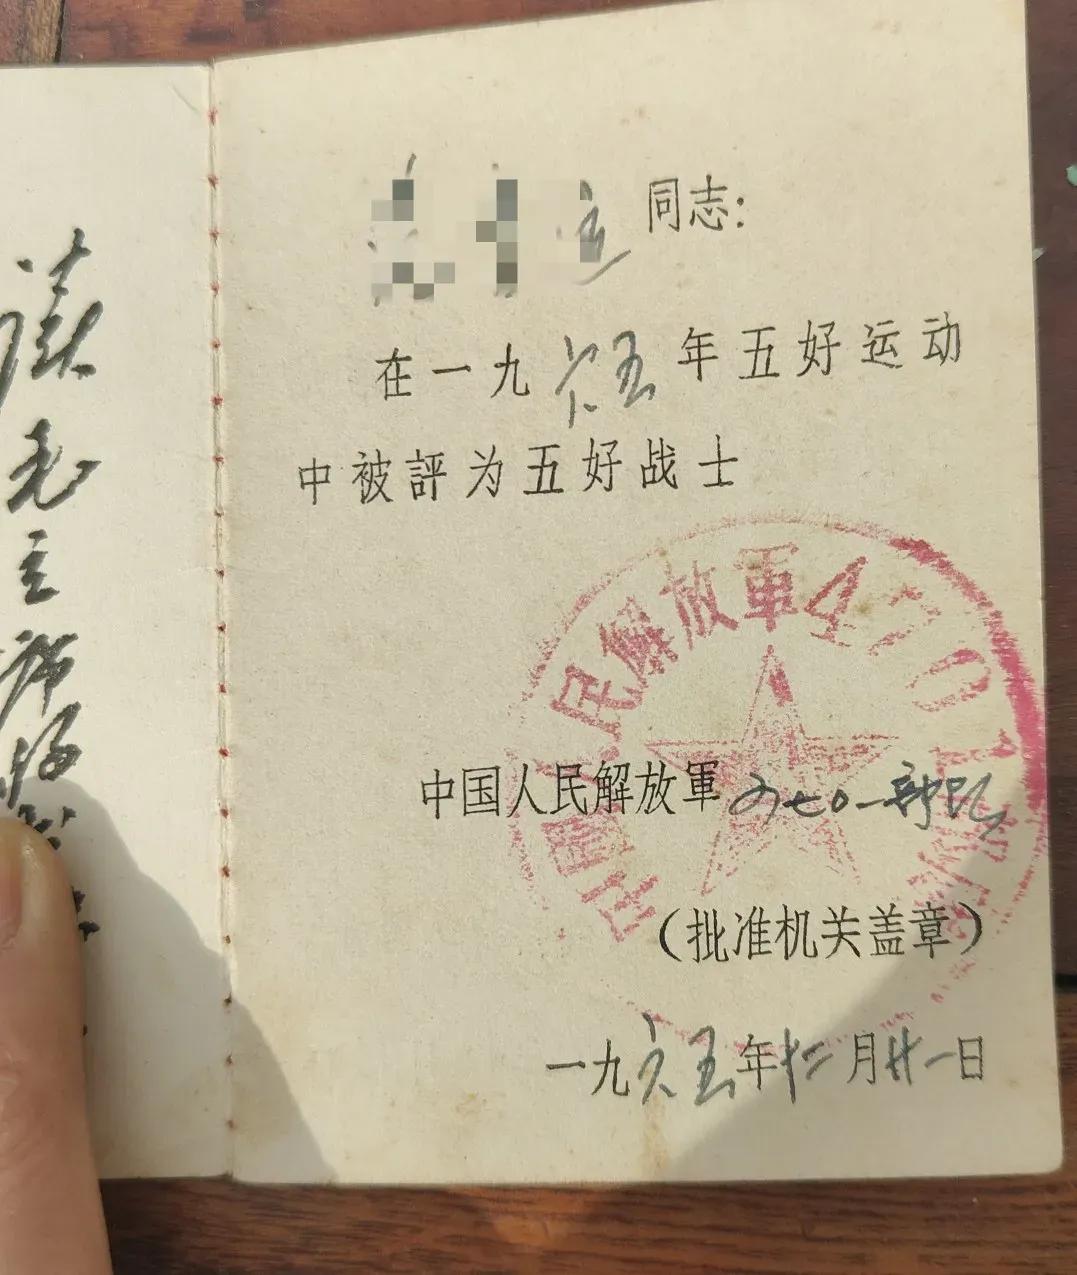 毛主席
同志：
在一九六五年五好运动
中被評为五好战士
中国人民解放軍四七〇一部队
（批准机关盖章）
一九六五年十二月廿一日
民解放軍4701